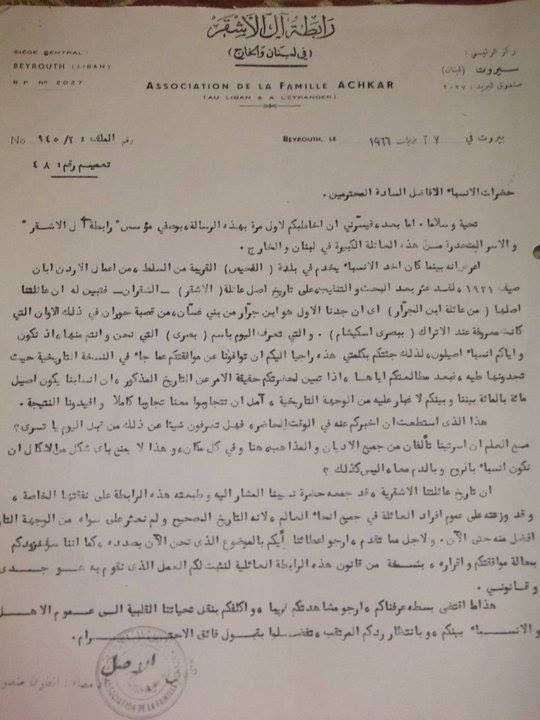 رابطة آل الأشقر
(في لبنان والخارج)
SIÈGE CENTRAL:
BEYROUTH (LIBAN)
B.P. Nº 2027
مركز الرئيسي:
بيروت (لبنان)
صندوق البريد: ٢٠٢٧
ASSOCIATION DE LA FAMILLE ACHKAR
(AU LIBAN & A L'ÉTRANGER)
No رقم الملف: ٩٤٥/٢
BEYROUTH, LE
بيروت في ٢٧ ١٩٦٦
تعميم رقم: ٤٨
حضرات الانسباء الافاضل السادة المحترمين.
تحية وسلاما. اما بعد، فيسرني ان اخاطبكم لاول مرة بهذه الرسالة، بوصفي مؤسس "رابطة آل الاشقر"
و الاسر المتحدرة من هذه العائلة الكبيرة في لبنان و الخارج.
اعرانه بينما كان احد الانسباء يخدم في بلدة (الفحيص) القريبة من السلط، من اعمال الاردن ابان
صيف ١٩٢١، لقد عثر بعد البحث و التنقيب على تاريخ اصل عائلة (الاشقر) ــ الشقران ــ فتبين له ان عائلتنا
اصلها (من عائلة ابن الجرّار) اى ان جدنا الاول هو ابن جرّار من بني غسان، من قصبة حوران في ذلك الاوان التي
كانت معروفة عند الاتراك (ببصرى اسكيشام). و التي تعرف اليوم باسم (بصرى) التي نحن و انتم منها، اذ نكون
و اياكم انسباء اصيلون، لذلك جئتكم بكلمتي هذه راجيا اليكم ان توافونا عن موافقتكم عما جاء في النسخة التاريخية حيث
تجدونها طيه، فبعد مطالعتكم اياها، اذا تبين لحضرتكم حقيقة الامر عن التاريخ المذكور، ان انسابنا يكون اصيل
مائة بالمائة بيننا و بينكم لا غبار عليه من الوجهة التاريخية، آمل ان تتجاوبوا معنا تجاوبا كاملا و افيدونا النتيجة.
هذا الذى استطعت ان اخبركم عنه في الوقت الحاضر، فهل تعرفون شيئا عن ذلك من قبل اليوم يا ترى؟
مع العلم ان اسرتينا تتألفان من جميع الاديان و المذاهب هنا و في كل مكان، و هذا لا يعني باى شكل من الاشكال ان
نكون انسباء بالروح و بالدم معا، اليس كذلك؟
ان تاريخ عائلتنا الاشقرية، قد جمعه حضرة نسيبنا المشار اليه و طبعته هذه الرابطة على نفقتها الخاصة،
و قد وزعته على عموم افراد العائلة في جميع انحاء العالم، لانه التاريخ الصحيح و لم نعثر على سواه من الوجهة التار
افضل منه حتى الآن. و لاجل ما تقدم، ارجو اعطائنا رأيكم بالموضوع الذى نحن الآن بصدده، كما اننا سنزودكم
بحالة موافقتكم و اقراره، بنسخة من قانون هذه الرابطة العائلية لنثبت لكم العمل الذى نقوم به هو جدى
و قانوني.
هذا ما اقتضى بسطه عرفناكم، ارجو مشاهدتكم قريبا، و اكلفكم بنقل تحياتنا القلبية الى عموم الاهل
و الانسباء بينكم، و بانتظار ردكم المرتقب، تفضلوا بقبول فائق الاحترام.
الاصل
ASSOCIATION DE LA FAMILLE
امضاء: انطون منصور